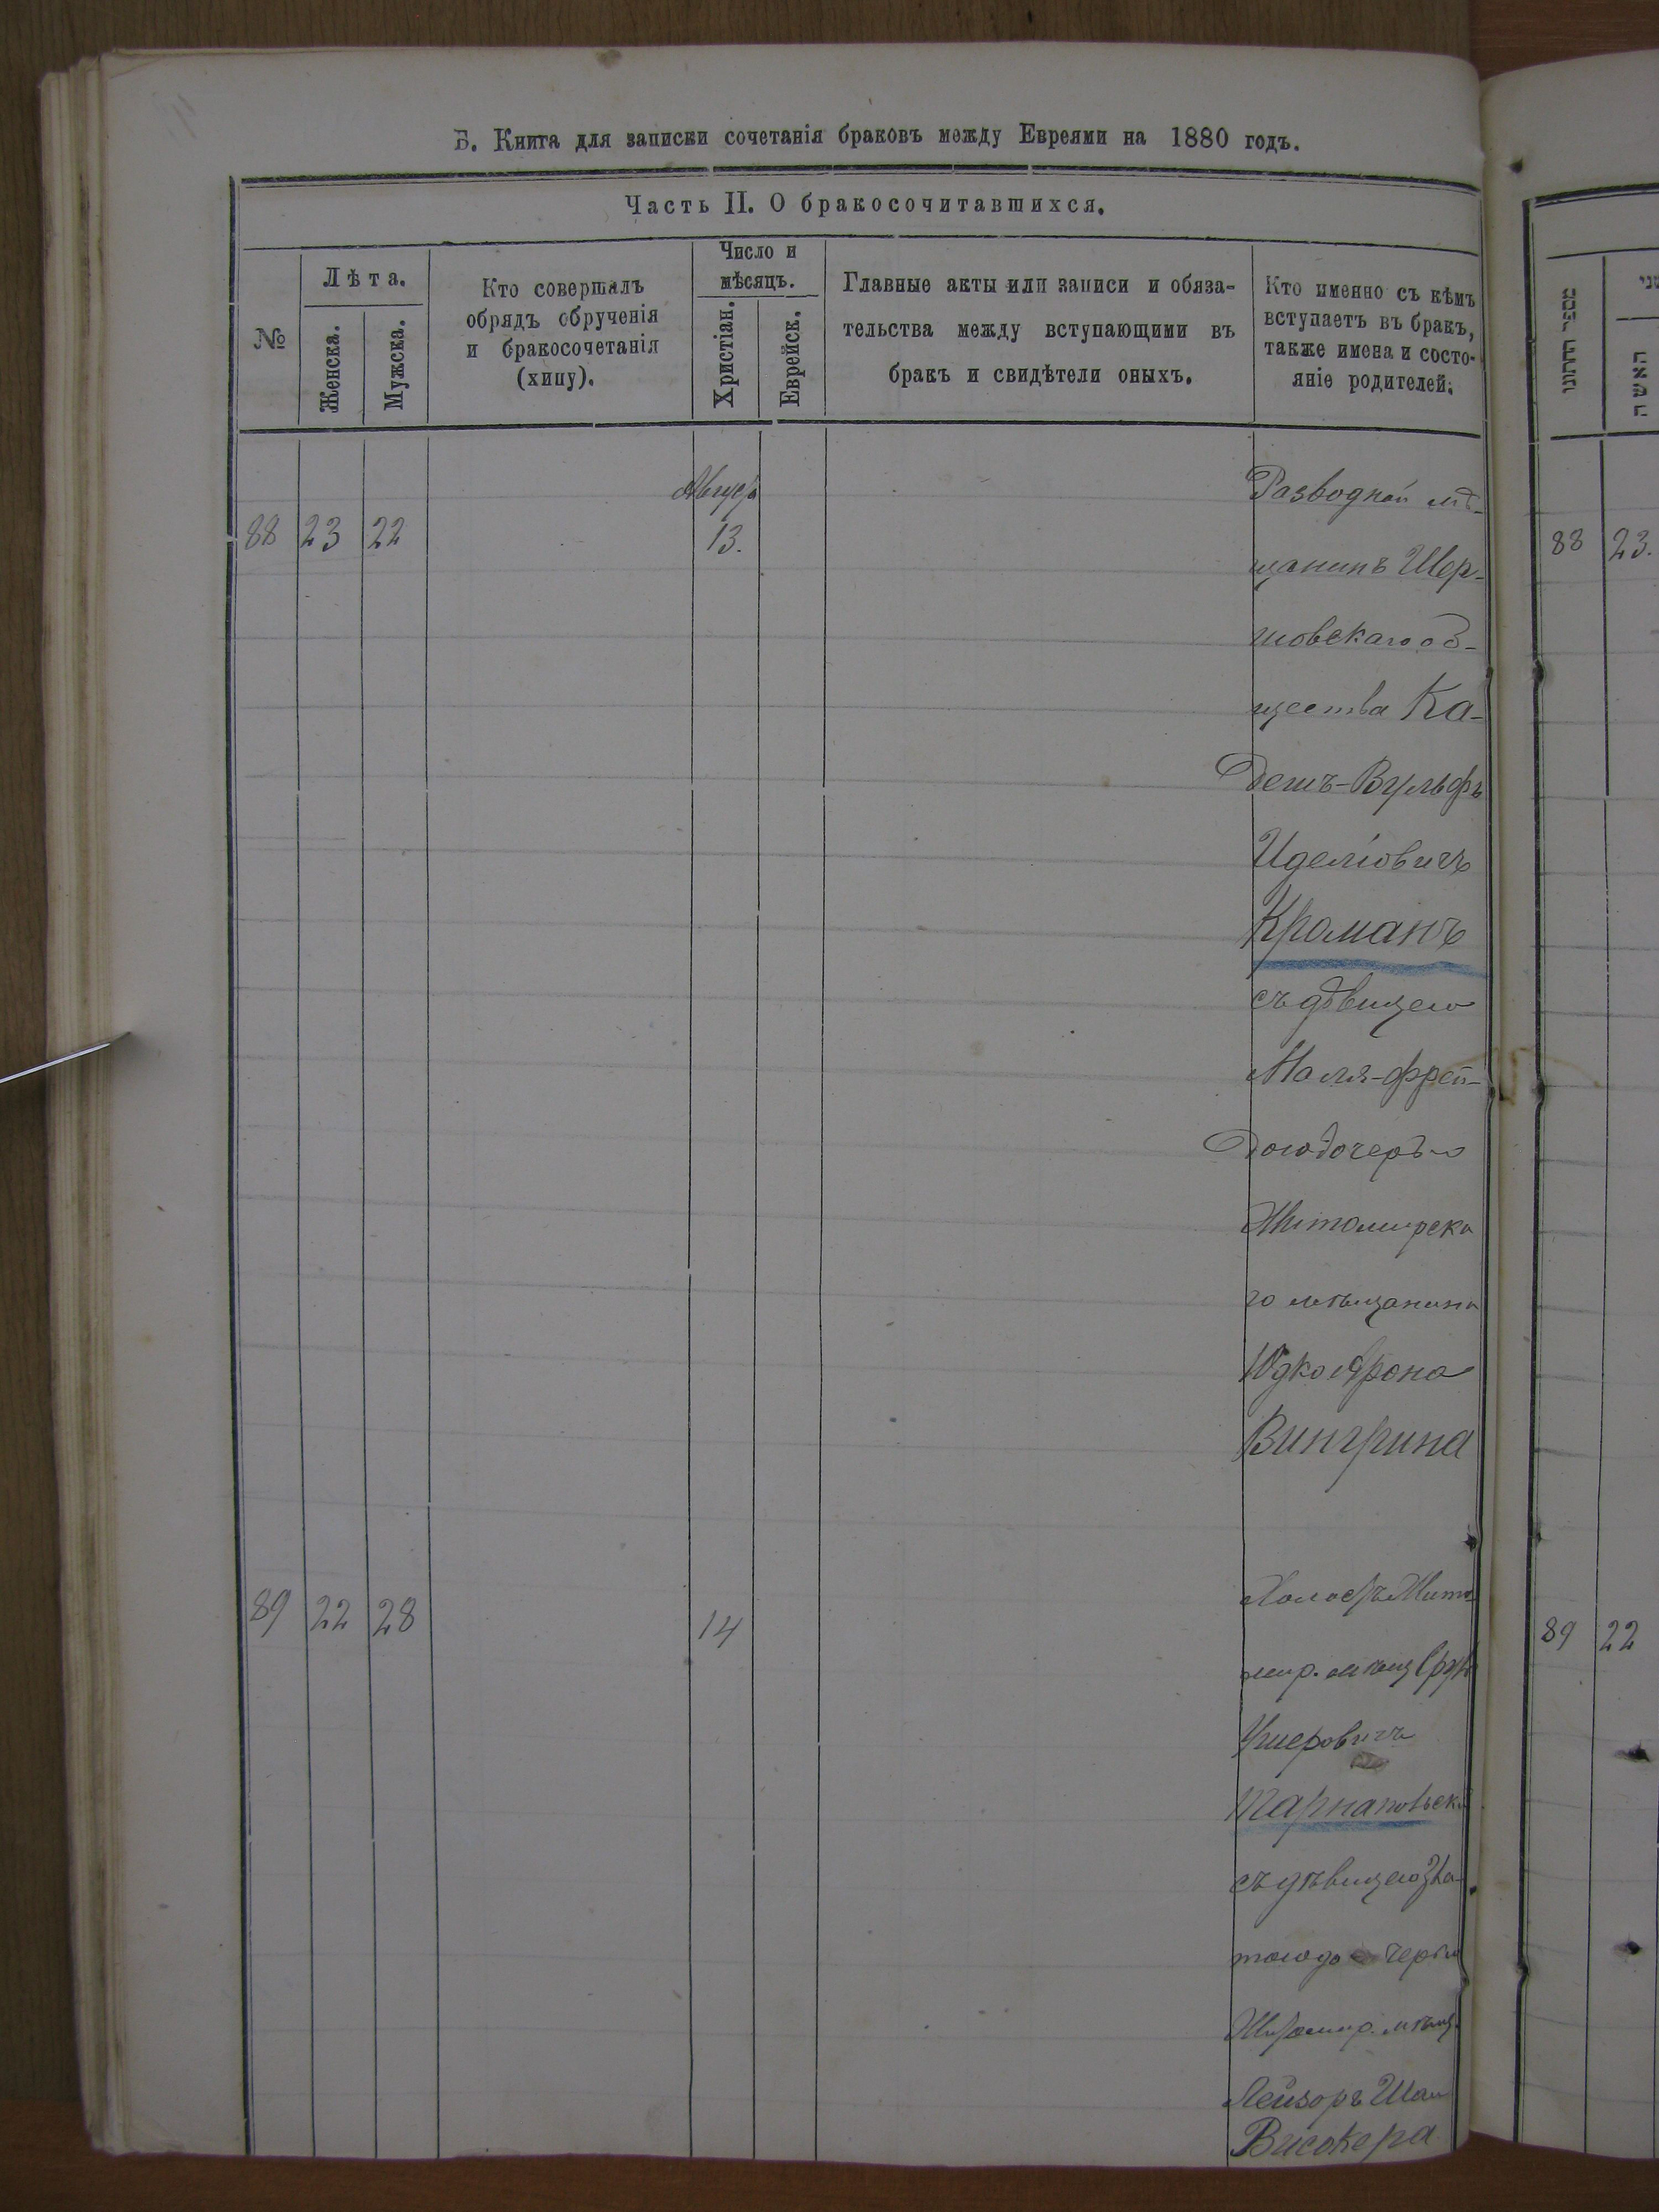 Б. Книга для записки сочетанія браковъ между Евреями на 1880 годъ.
Часть II. О бракосочитавшихся.
№
Лѣта.
Женска.
Мужска.
Кто совершалъ
обрядъ обрученія
и бракосочетанія
(хипу).
Число и
мѣсяцъ.
Христіан.
Еврейск.
Главные акты или записи и обяза-
тельства между вступающими въ
бракъ и свидѣтели оныхъ.
Кто именно съ кѣмъ
вступаетъ въ бракъ,
также имена и состо-
яніе родителей.
88 23 22
13.
Разводной мѣ-
щанинъ Шер-
шовскаго об-
щества Ка-
дешъ-Вульфъ
Иделіовичъ
Кроманъ
съ дѣвицею
Маля-Фрей-
дою дочерью
Житомирска
го мѣщанина
Юдко Арона
Вингрина
89 22 28
14
Холостъ Жито
мир. мѣщ
Ушеровичъ
съ дѣвицею Зла-
тою до черью
Житомир. мѣщ.
Лейзоръ
Високера
מספר החתונו
האשה
88 23.
89 22